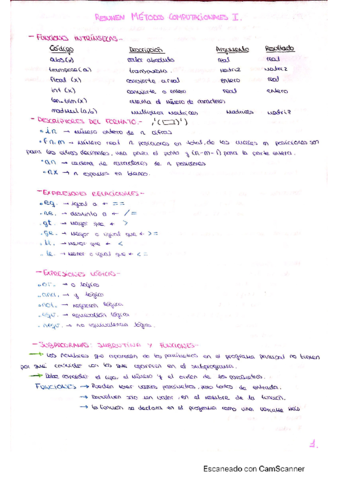 RESUMEN MÉTODOS COMPUTACIONALES I.
- FUNCIONES INTRÍNSECAS -
Código Descripción Argumento Resultado
abs(x) valor absoluto real real
transpose(a) transpuesta matriz matriz
float (x) convierte a real entero real
int (x) convierte a entero real entero
len_trim(x) cuenta el número de caracteres
matmul (a,b) multiplicar matrices matrices matriz
- DESCRIPTORES DEL FORMATO -
· in → número entero de n cifras
· fn.m → número real n posiciones en total, de las cuales m posiciones son
para las cifras decimales, una para el punto y (n-m-1) para la parte entera.
· an → cadena de caracteres de n posiciones
· nx → n espacios en blanco.
- EXPRESIONES RELACIONALES -
.eq. → igual a ← ==
.ne. → distinto a ← /=
.gt. → mayor que ← >
.ge. → mayor o igual que ← >=
.lt. → menor que ← <
.le. → menor o igual que ← <=
- EXPRESIONES LÓGICAS -
.or. → o lógico
.and. → y lógico
.not. → negación lógica
.eqv. → equivalencia lógica
.neqv. → no equivalencia lógica
- SUBPROGRAMAS: SUBRUTINA Y FUNCIONES -
→ Los nombres que aparecen de los parámetros en el programa principal no tienen
por qué coincidir con los que aparecen en el subprograma.
→ Debe coincidir el tipo, el número y el orden de los parámetros.
FUNCIONES → Pueden tener varios parámetros, todos de entrada.
→ Devuelven sólo un valor, en el nombre de la función.
→ La función se declara en el programa como una variable más
1.
Escaneado con CamScanner